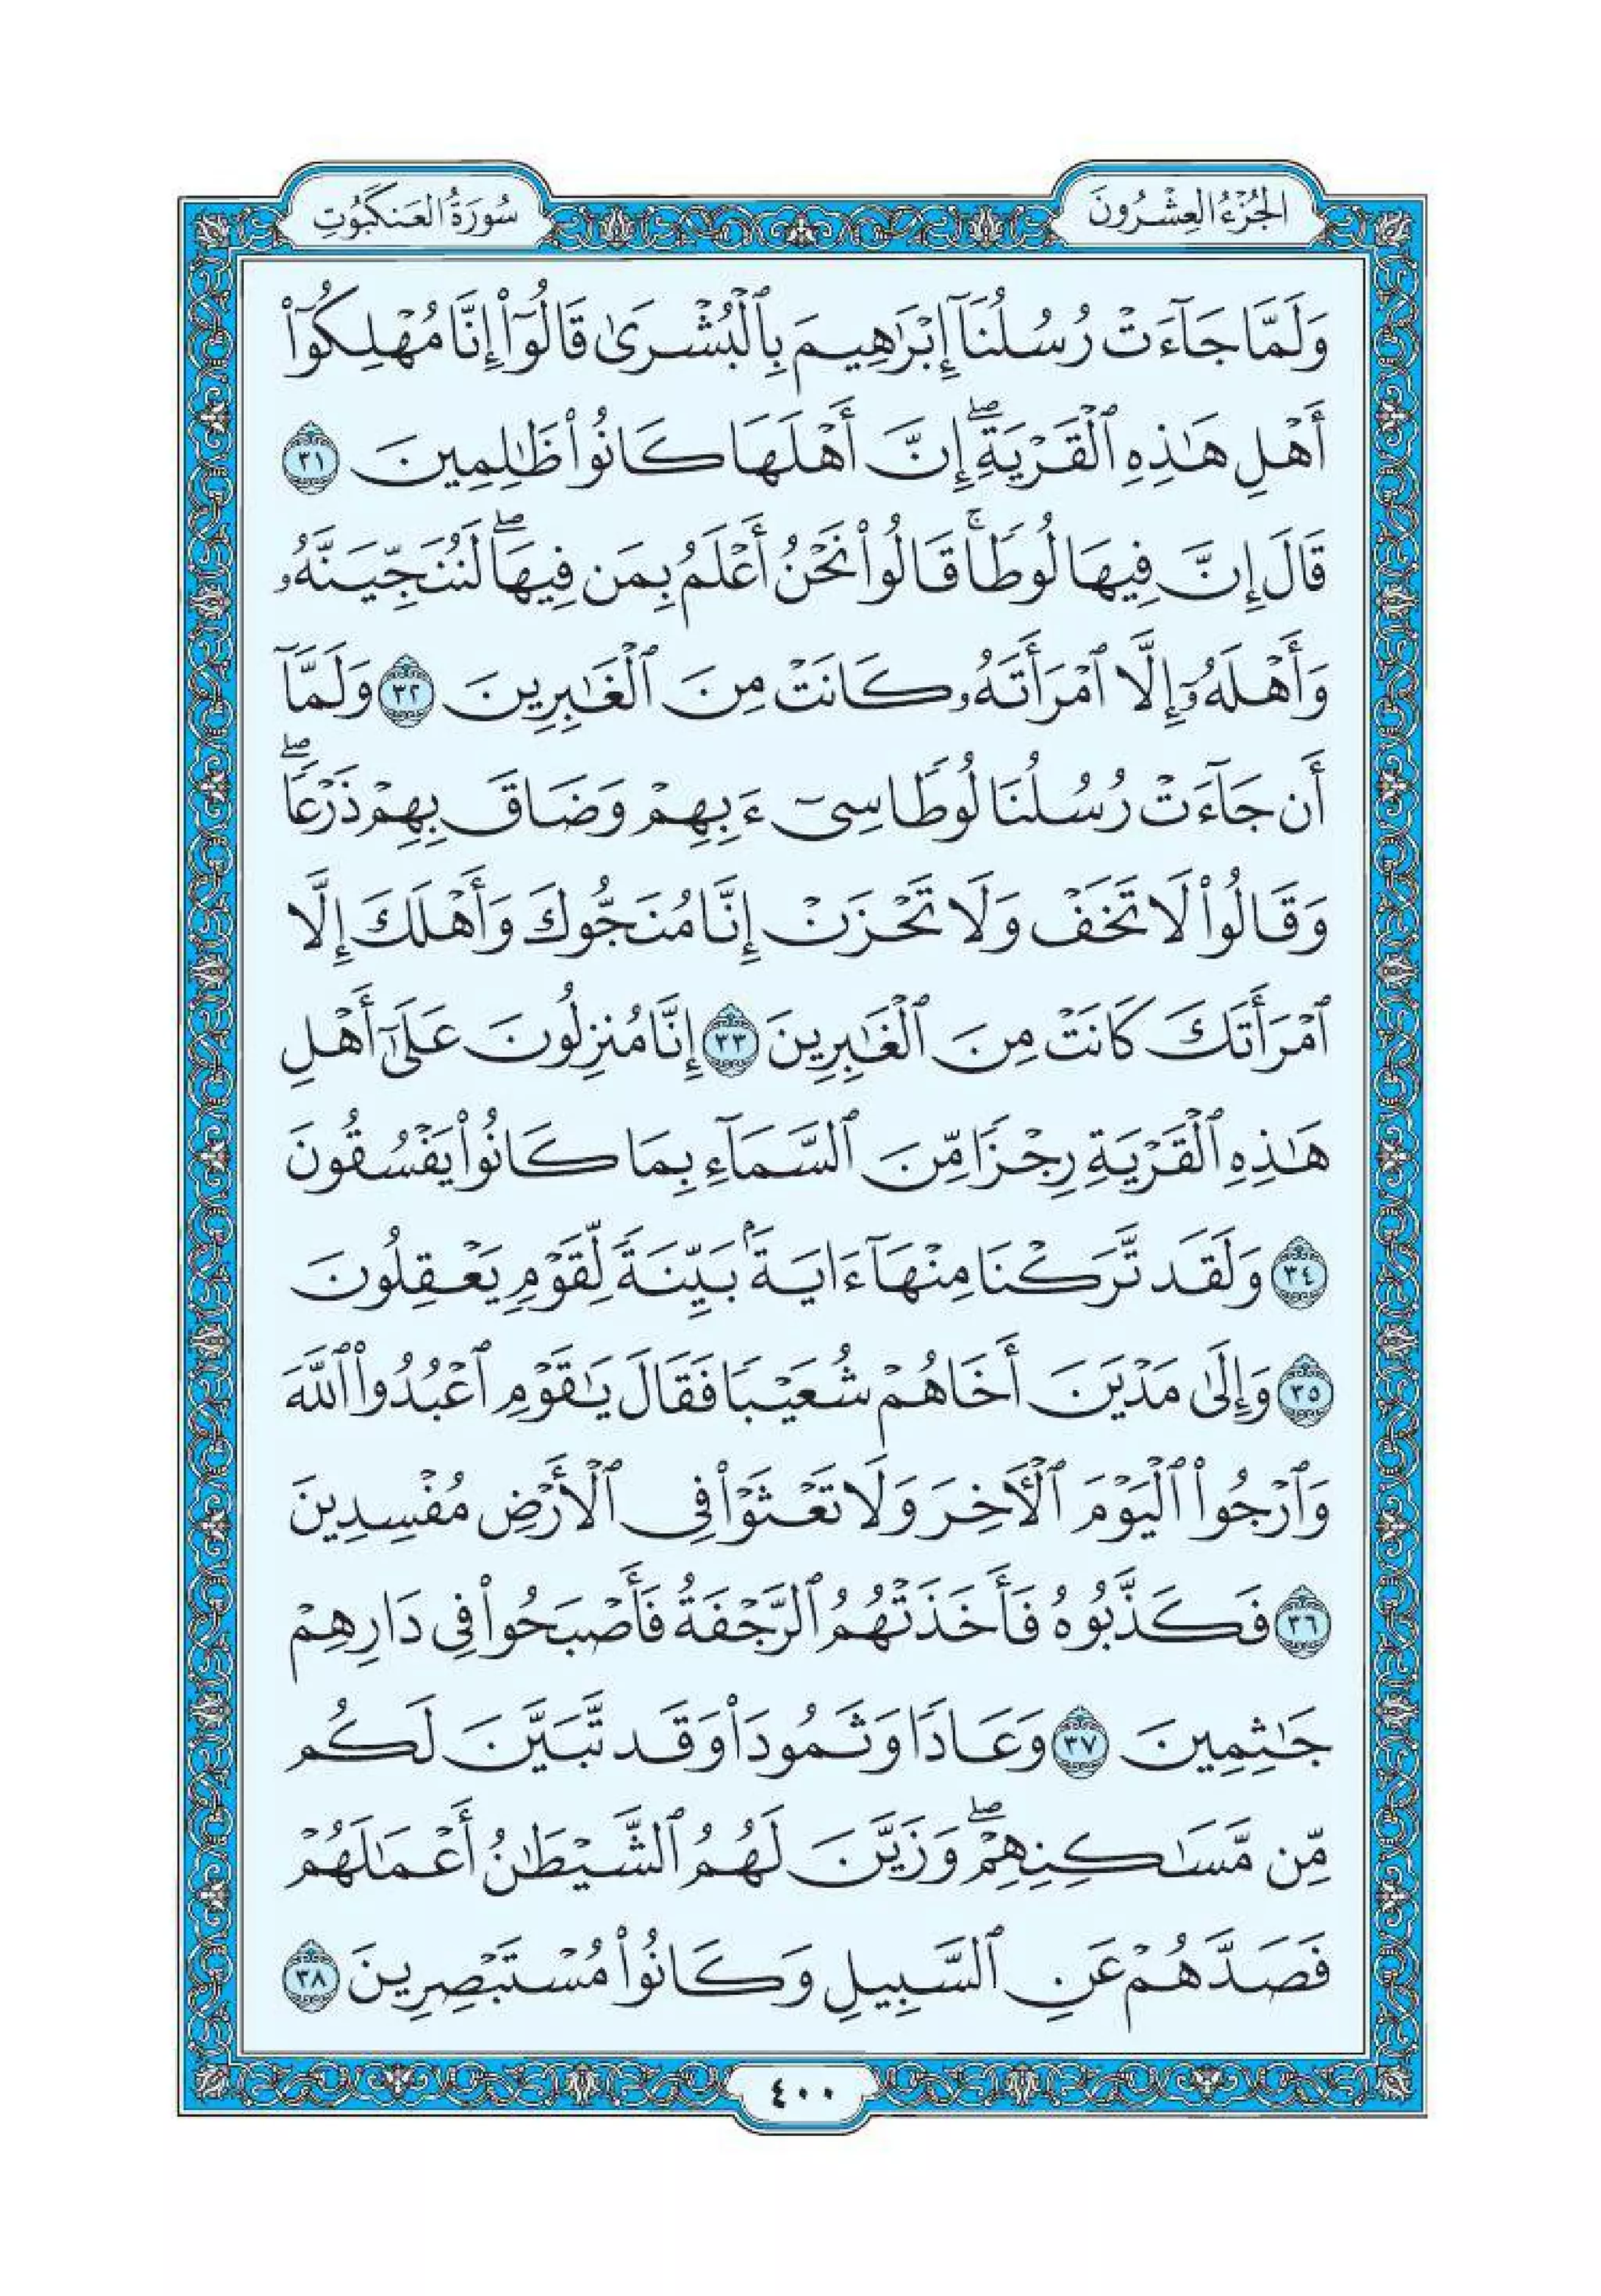 الجُزْءُ العِشْرُونَ
سُورَةُ العَنكَبُوتِ
وَلَمَّا جَآءَتْ رُسُلُنَآ إِبْرَٰهِيمَ بِٱلْبُشْرَىٰ قَالُوٓا۟ إِنَّا مُهْلِكُوٓا۟
أَهْلِ هَـٰذِهِ ٱلْقَرْيَةِ ۖ إِنَّ أَهْلَهَا كَانُوا۟ ظَـٰلِمِينَ ٣١
قَالَ إِنَّ فِيهَا لُوطًا ۚ قَالُوا۟ نَحْنُ أَعْلَمُ بِمَن فِيهَا ۖ لَنُنَجِّيَنَّهُۥ
وَأَهْلَهُۥٓ إِلَّا ٱمْرَأَتَهُۥ كَانَتْ مِنَ ٱلْغَـٰبِرِينَ ٣٢ وَلَمَّآ
أَن جَآءَتْ رُسُلُنَا لُوطًا سِىٓءَ بِهِمْ وَضَاقَ بِهِمْ ذَرْعًا ۖ
وَقَالُوا۟ لَا تَخَفْ وَلَا تَحْزَنْ إِنَّا مُنَجُّوكَ وَأَهْلَكَ إِلَّا
ٱمْرَأَتَكَ كَانَتْ مِنَ ٱلْغَـٰبِرِينَ ٣٣ إِنَّا مُنزِلُونَ عَلَىٰٓ أَهْلِ
هَـٰذِهِ ٱلْقَرْيَةِ رِجْزًا مِّنَ ٱلسَّمَآءِ بِمَا كَانُوا۟ يَفْسُقُونَ
٣٤ وَلَقَد تَّرَكْنَا مِنْهَآ ءَايَةًۢ بَيِّنَةً لِّقَوْمٍ يَعْقِلُونَ
٣٥ وَإِلَىٰ مَدْيَنَ أَخَاهُمْ شُعَيْبًا فَقَالَ يَـٰقَوْمِ ٱعْبُدُوا۟ ٱللَّهَ
وَٱرْجُوا۟ ٱلْيَوْمَ ٱلْـَٔاخِرَ وَلَا تَعْثَوْا۟ فِى ٱلْأَرْضِ مُفْسِدِينَ
٣٦ فَكَذَّبُوهُ فَأَخَذَتْهُمُ ٱلرَّجْفَةُ فَأَصْبَحُوا۟ فِى دَارِهِمْ
جَـٰثِمِينَ ٣٧ وَعَادًا وَثَمُودَا۟ وَقَد تَّبَيَّنَ لَكُم
مِّن مَّسَـٰكِنِهِمْ ۖ وَزَيَّنَ لَهُمُ ٱلشَّيْطَـٰنُ أَعْمَـٰلَهُمْ
فَصَدَّهُمْ عَنِ ٱلسَّبِيلِ وَكَانُوا۟ مُسْتَبْصِرِينَ ٣٨
٤٠٠